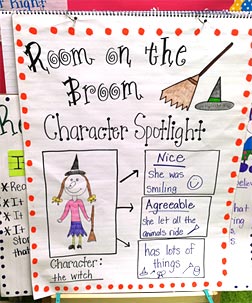 Room on the
Broom
Character Spotlight
Nice
she was
smiling
Agreeable
she let all the
animals ride
has lots of
things
Character:
the witch